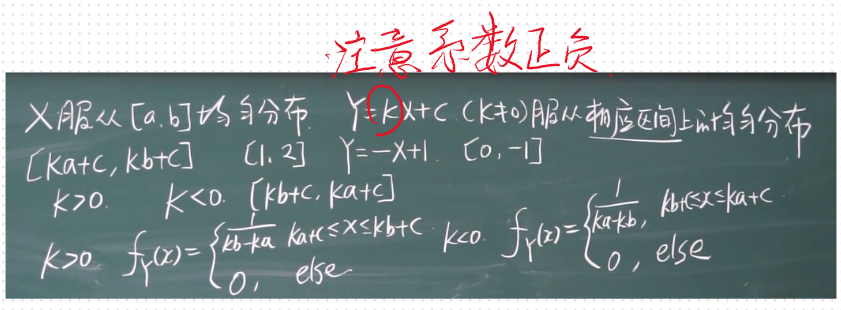 注意系数正负
X服从[a.b]均匀分布. Y=kX+c.(k≠0)服从相应区间上的均匀分布
[ka+c, kb+c] [1,2] Y=-X+1. [0,-1]
k>0. k<0. [kb+c, ka+c]
k>0. f_Y(x)={1/(kb-ka) ka+c≤x≤kb+c; 0, else k<0. f_Y(x)={1/(ka-kb), kb+c≤x≤ka+c; 0, else